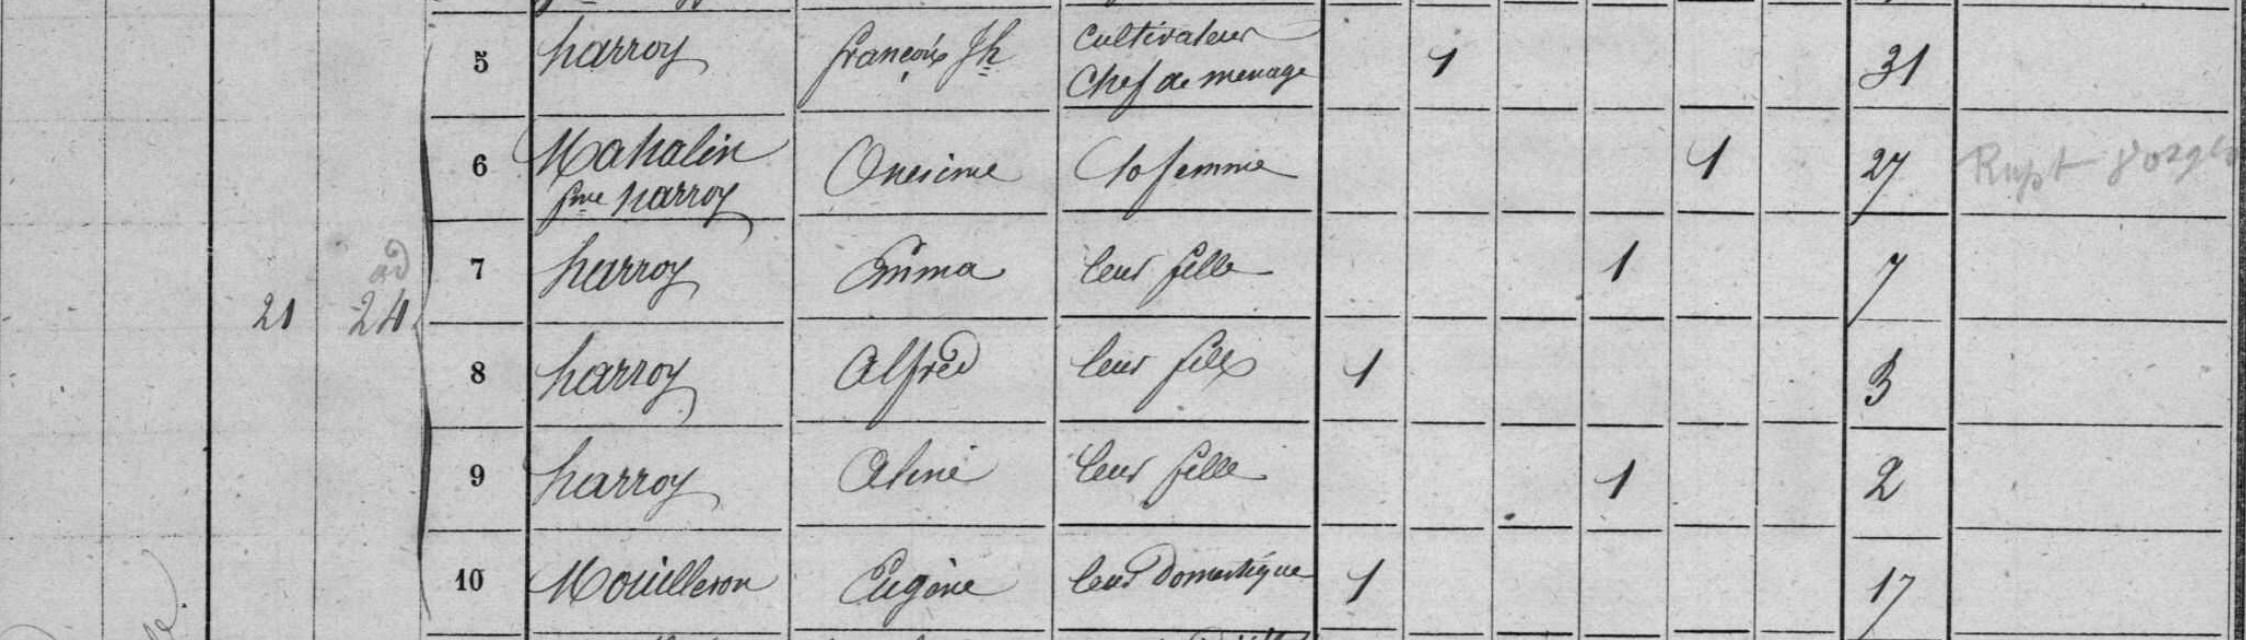 5 harroy françois Jh cultivateur
Chef de menage 1 31
6 Mahalin Onesime sa femme 1 27 Rupt Vosges
fme harroy
7 harroy Emma leur fille 1 7
ad
21 24
8 harroy Alfred leur fils 1 3
9 harroy Aline leur fille 1 2
10 Mouilleron Eugène leur domestique 1 17